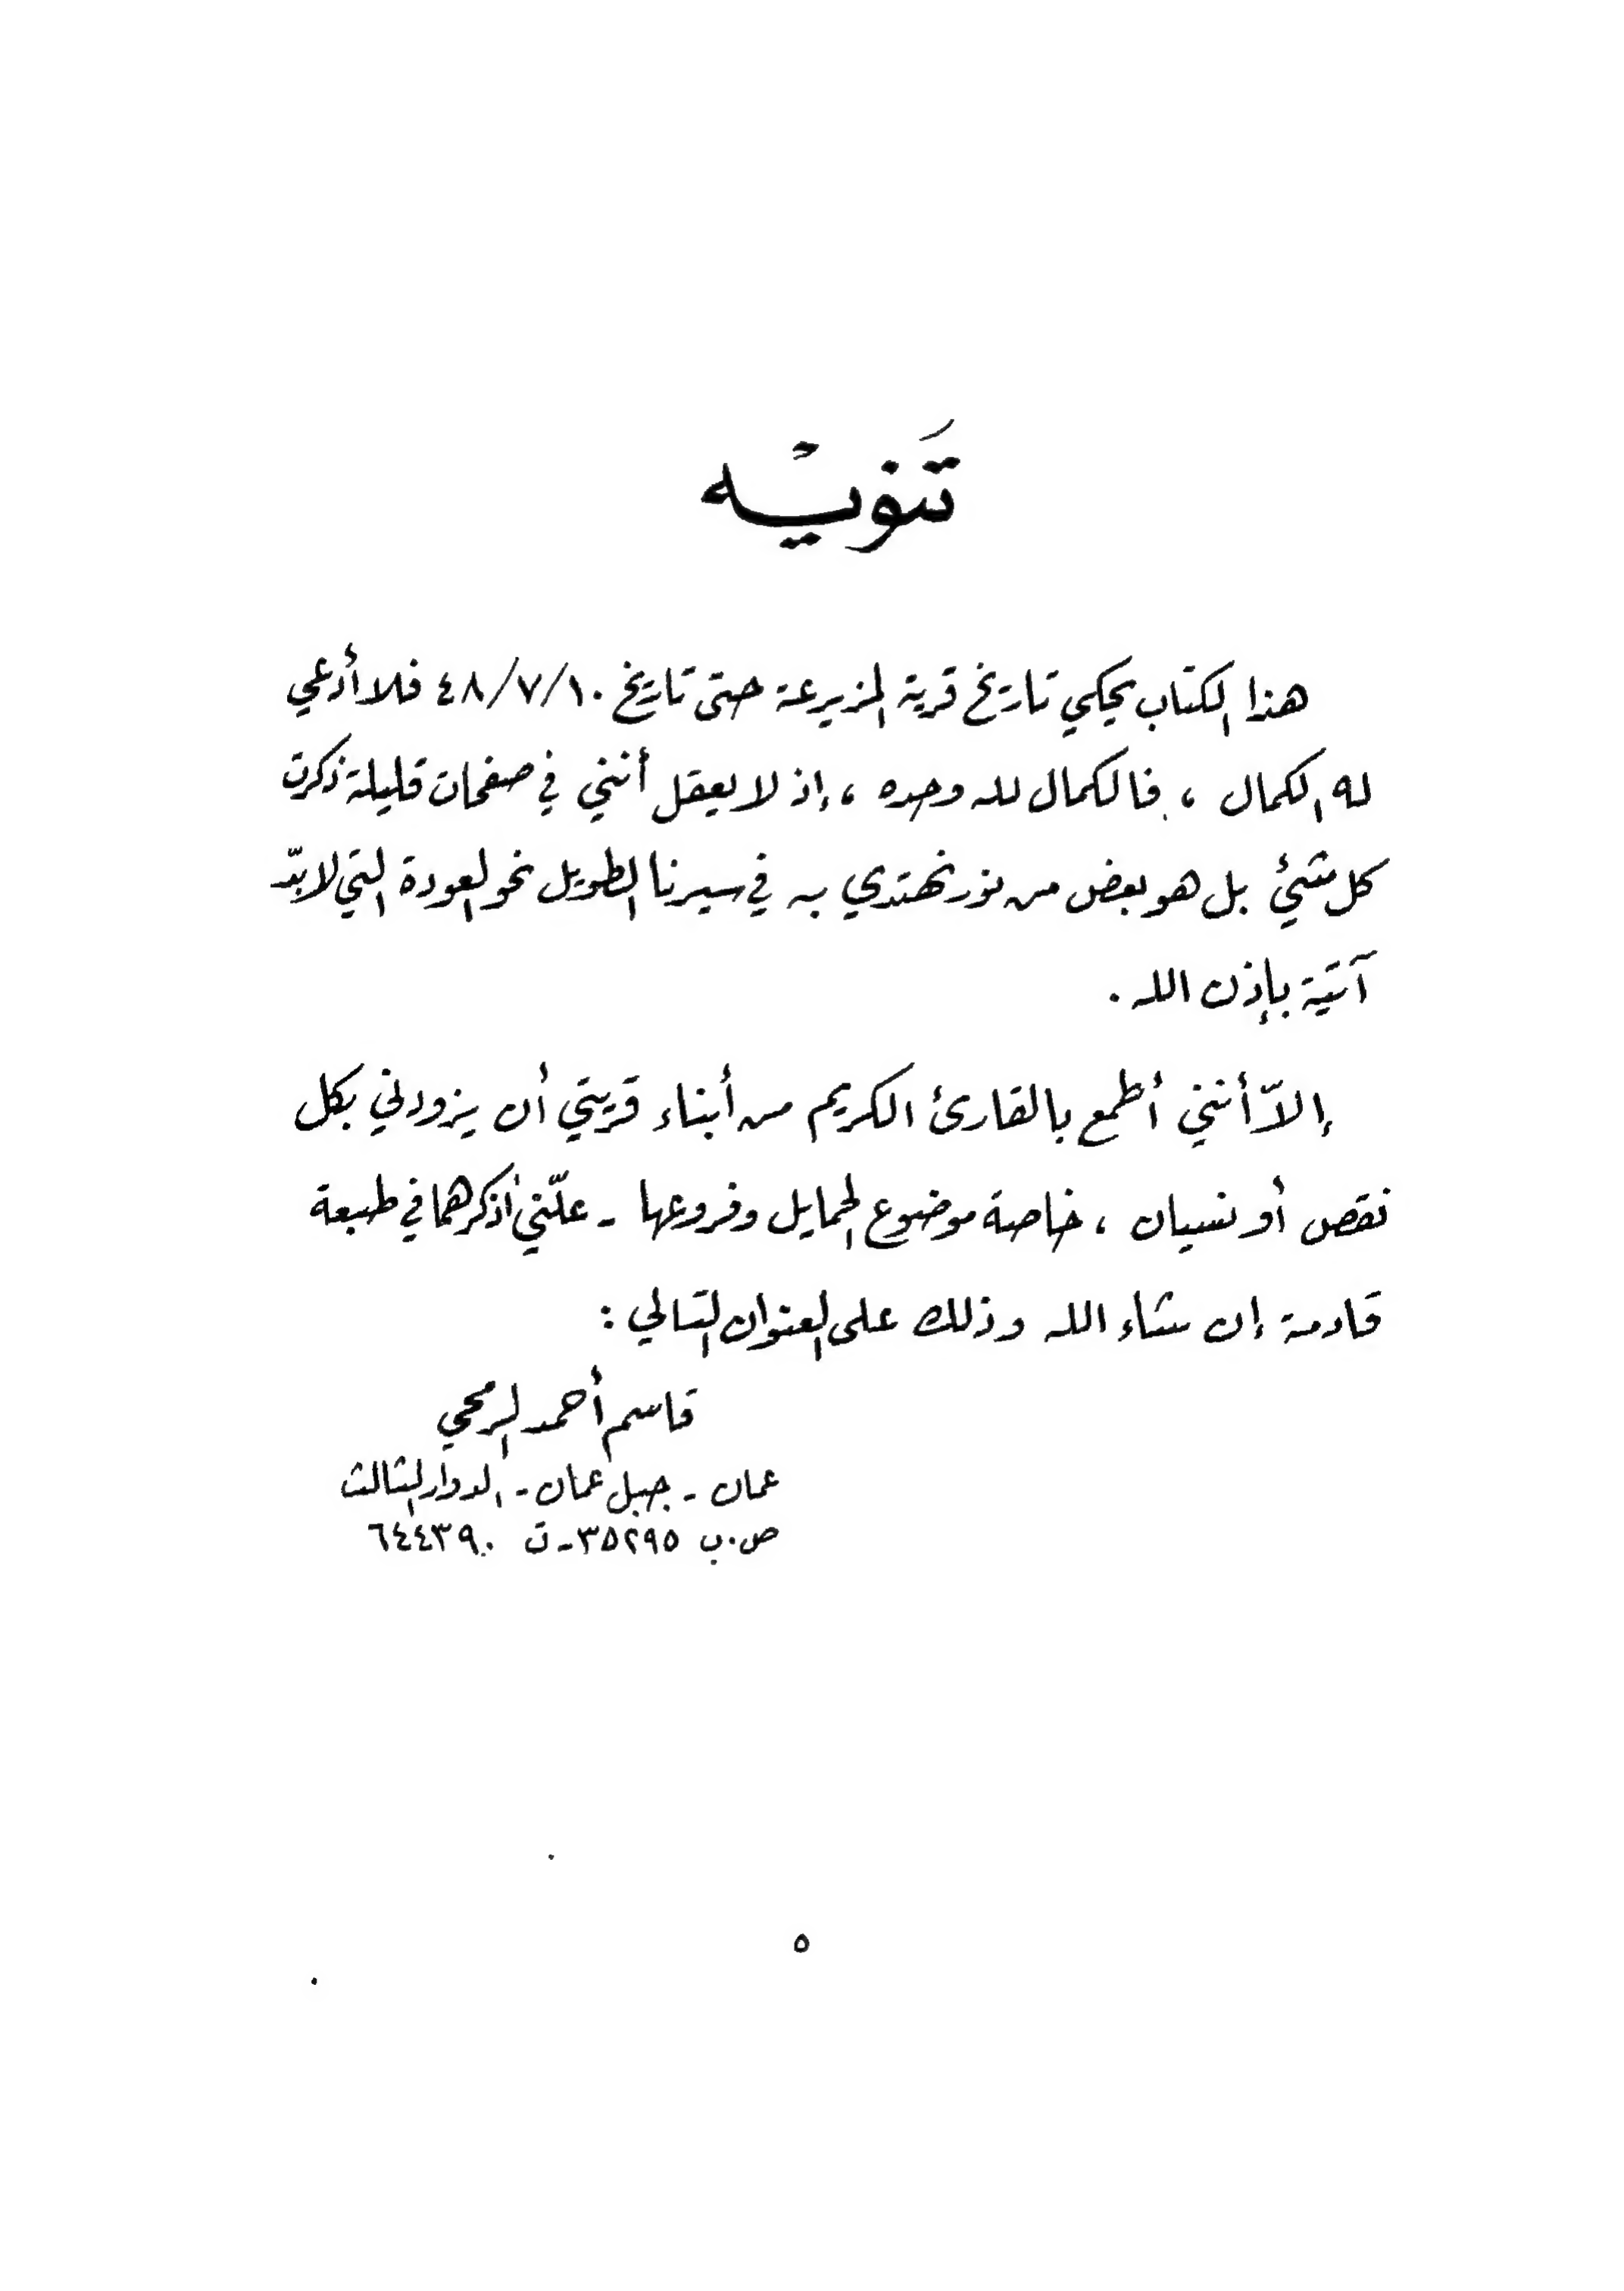 تَنويْه
هذا الكتاب يحكي تاريخ قرية المزيرعة حتى تاريخ ٤٨/٧/١٠ فلا أدعي
له الكمال ، فالكمال لله وحده ، إذ لا يعقل أنني في صفحات قليلة ذكرت
كل شئ بل هو بعض من نور نهتدي به في سيرنا الطويل نحو العودة التي لا بدّ
آتية بإذن الله .
إلاّ أنني أطمع بالقارئ الكريم من أبناء قريتي أن يزودني بكل
نقص أو نسيان ، خاصة موضوع الحمايل وفروعها - علّني أذكرهما في طبعة
قادمة إن شاء الله وذلك على العنوان التالي :
قاسم أحمد الرمحي
عمان - جبل عمان - الدوار الثالث
ص.ب ٣٥٢٩٥ - ت ٦٤٤٣٩٠
٥